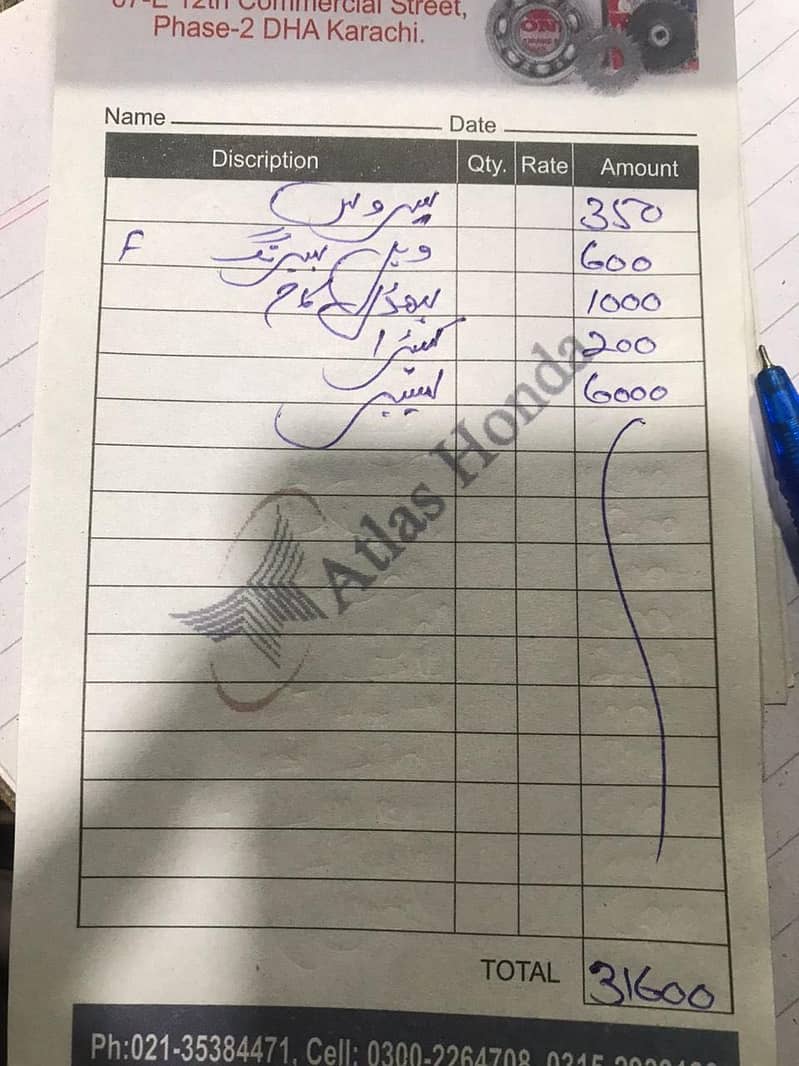 12th Commercial Street,
Phase-2 DHA Karachi.
Name Date
Discription Qty. Rate Amount
سروس 350
ویل بیرنگ F 600
کام 1000
200
لیبر 6000
Atlas Honda
TOTAL 31600
Ph:021-35384471, Cell: 0300-2264708,